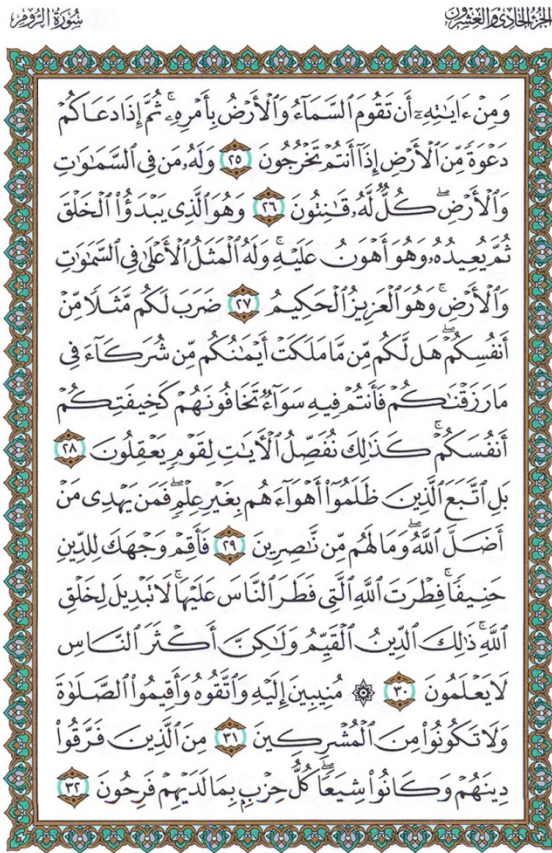 الجزء الحادي والعشرون
سُورَةُ الرُّومِ
وَمِنْ ءَايَٰتِهِۦٓ أَن تَقُومَ ٱلسَّمَآءُ وَٱلْأَرْضُ بِأَمْرِهِۦ ۚ ثُمَّ إِذَا دَعَاكُمْ
دَعْوَةً مِّنَ ٱلْأَرْضِ إِذَآ أَنتُمْ تَخْرُجُونَ ٢٥ وَلَهُۥ مَن فِى ٱلسَّمَٰوَٰتِ
وَٱلْأَرْضِ ۖ كُلٌّ لَّهُۥ قَٰنِتُونَ ٢٦ وَهُوَ ٱلَّذِى يَبْدَؤُا۟ ٱلْخَلْقَ
ثُمَّ يُعِيدُهُۥ وَهُوَ أَهْوَنُ عَلَيْهِ ۚ وَلَهُ ٱلْمَثَلُ ٱلْأَعْلَىٰ فِى ٱلسَّمَٰوَٰتِ
وَٱلْأَرْضِ ۚ وَهُوَ ٱلْعَزِيزُ ٱلْحَكِيمُ ٢٧ ضَرَبَ لَكُم مَّثَلًا مِّنْ
أَنفُسِكُمْ ۖ هَل لَّكُم مِّن مَّا مَلَكَتْ أَيْمَٰنُكُم مِّن شُرَكَآءَ فِى
مَا رَزَقْنَٰكُمْ فَأَنتُمْ فِيهِ سَوَآءٌ تَخَافُونَهُمْ كَخِيفَتِكُمْ
أَنفُسَكُمْ ۚ كَذَٰلِكَ نُفَصِّلُ ٱلْءَايَٰتِ لِقَوْمٍ يَعْقِلُونَ ٢٨
بَلِ ٱتَّبَعَ ٱلَّذِينَ ظَلَمُوٓا۟ أَهْوَآءَهُم بِغَيْرِ عِلْمٍ ۖ فَمَن يَهْدِى مَنْ
أَضَلَّ ٱللَّهُ ۖ وَمَا لَهُم مِّن نَّٰصِرِينَ ٢٩ فَأَقِمْ وَجْهَكَ لِلدِّينِ
حَنِيفًا ۚ فِطْرَتَ ٱللَّهِ ٱلَّتِى فَطَرَ ٱلنَّاسَ عَلَيْهَا ۚ لَا تَبْدِيلَ لِخَلْقِ
ٱللَّهِ ۚ ذَٰلِكَ ٱلدِّينُ ٱلْقَيِّمُ وَلَٰكِنَّ أَكْثَرَ ٱلنَّاسِ
لَا يَعْلَمُونَ ٣٠ ۞ مُنِيبِينَ إِلَيْهِ وَٱتَّقُوهُ وَأَقِيمُوا۟ ٱلصَّلَوٰةَ
وَلَا تَكُونُوا۟ مِنَ ٱلْمُشْرِكِينَ ٣١ مِنَ ٱلَّذِينَ فَرَّقُوا۟
دِينَهُمْ وَكَانُوا۟ شِيَعًا ۖ كُلُّ حِزْبٍۭ بِمَا لَدَيْهِمْ فَرِحُونَ ٣٢